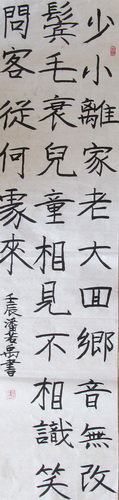 少小離家老大囬鄉音無改
鬢毛衰兒童相見不相識笑
問客從何處來
壬辰潘若禹書